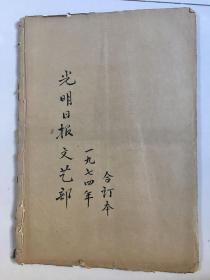 光明日报文艺部
一九七四年
合订本